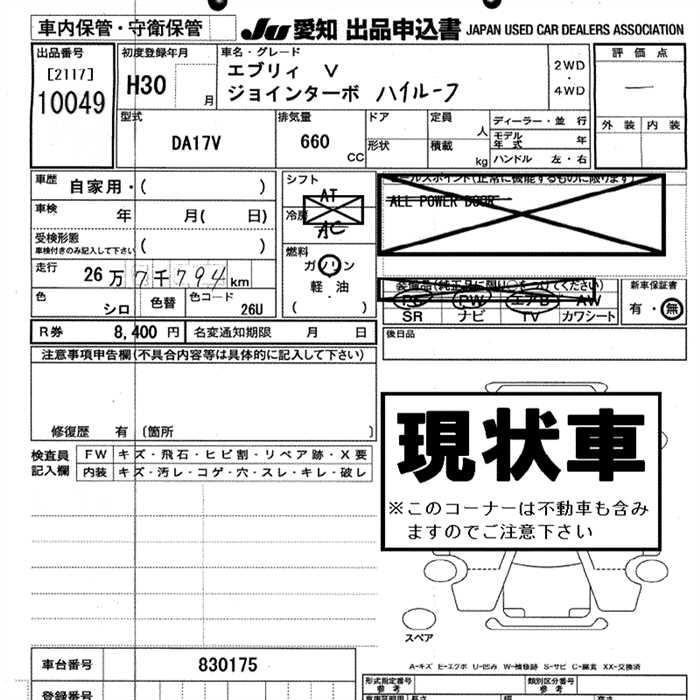 車内保管・守衛保管 JU 愛知 出品申込書 JAPAN USED CAR DEALERS ASSOCIATION
出品番号
[2117]
10049
初度登録年月
H30 月
車名・グレード
エブリィ V
ジョインターボ ハイルーフ
2WD
・
4WD
評価点
—
外装 内装
型式
DA17V
排気量
660 CC
ドア
形状
定員 人
積載 kg
ディーラー・並行
モデル年式 年
ハンドル 左・右
車歴 自家用・( )
車検 年 月( 日)
受検形態
車検付きのみ記入して下さい ( )
走行 26万7千794km
色 シロ 色替 色コード 26U
シフト
AT
冷房
AC
燃料
ガソリン
軽油
( )
セールスポイント(正常に機能するものに限ります)
ALL POWER DOOR
装備品(純正品に限り○をつけてください)
PS PW エアB AW
SR ナビ TV カワシート
新車保証書
有・無
R券 8,400 円 名変通知期限 月 日
後日品
注意事項申告欄(不具合内容等は具体的に記入して下さい)
修復歴 有 [箇所 ]
検査員記入欄
FW キズ・飛石・ヒビ割・リペア跡・X要
内装 キズ・汚レ・コゲ・穴・スレ・キレ・破レ
現状車
※このコーナーは不動車も含み
ますのでご注意下さい
スペア
A-キズ E-エクボ U-凹み W-補修跡 S-サビ C-腐食 XX-交換済
車台番号 830175
登録番号
形式指定番号
参考
類別区分番号
参考